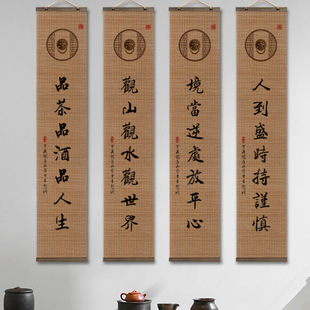 人到盛時持謹慎
境當逆處放平心
觀山觀水觀世界
品茶品酒品人生